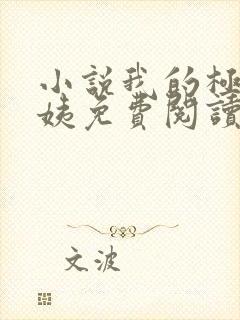 小說我的極
姨免費閱讀
文波